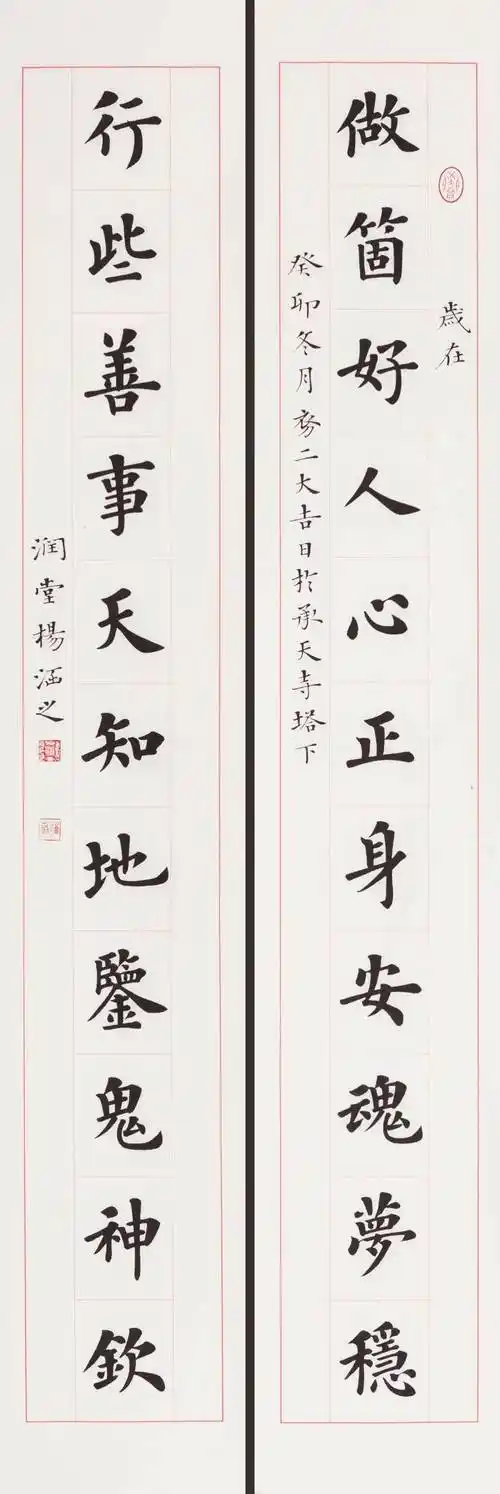 歲在
做箇好人心正身安魂夢穩
癸卯冬月廿二大吉日於承天寺塔下
行些善事天知地鑒鬼神欽
潤堂楊涵之